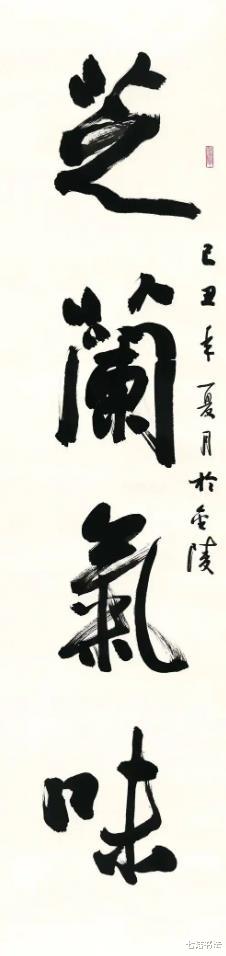 芝蘭氣味
己丑年夏月於金陵
七洛书法